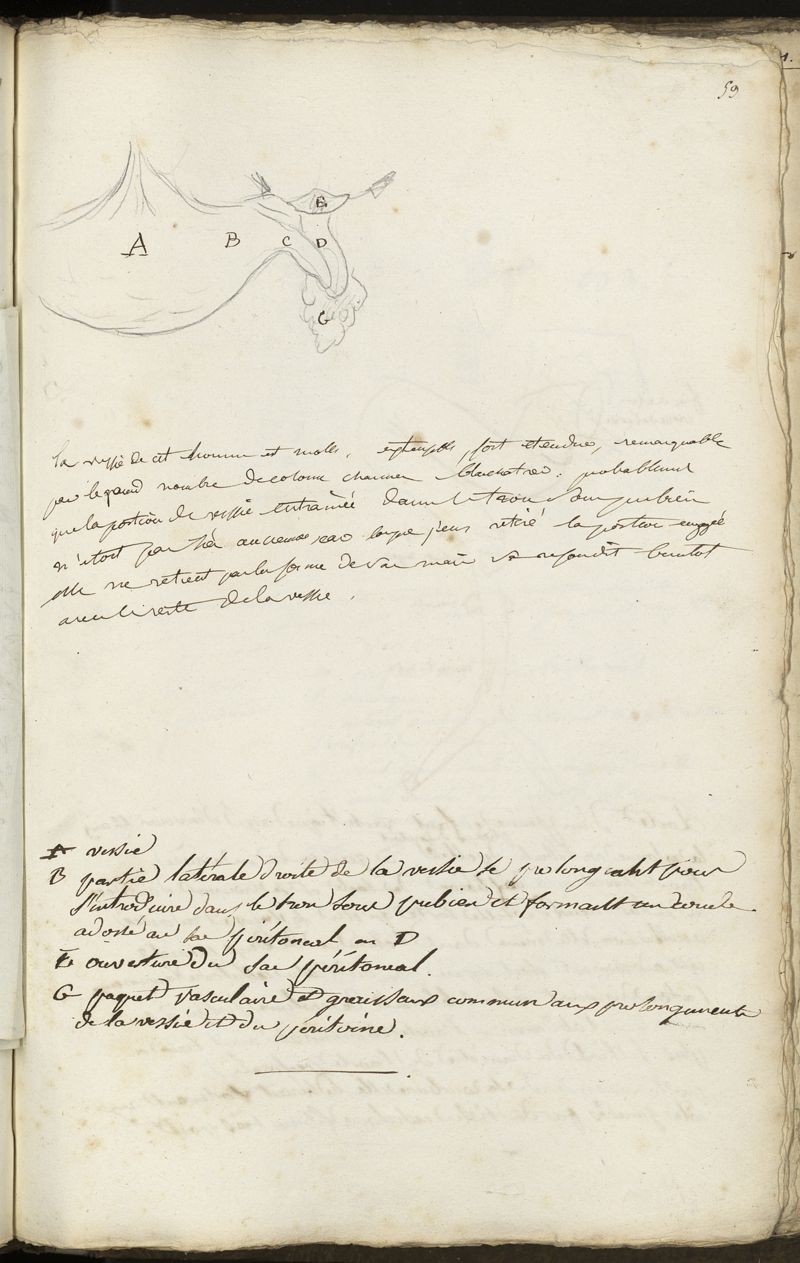 59
A B C D E G
la vessie de cet homme est molle, extensible, fort etendue, remarquable
par le grand nombre de colonne charnue blanchatre. probablement
que la portion de vessie entrainée dans le trou sous pubien
n'etoit pas très ancienne car lorsque j'eus retiré la portion engagée
elle ne retient pas la forme de et se refondit bientot
avec le reste de la vessie.
A vessie
B partie latérale droite de la vessie se prolongeant pour
s'introduire dans le trou sous pubien et formant un coude
adossé au sac péritoneal en D
E ouverture du sac péritoneal.
G paquet vasculaire et graisseux commun aux prolongements
de la vessie et du péritoine.